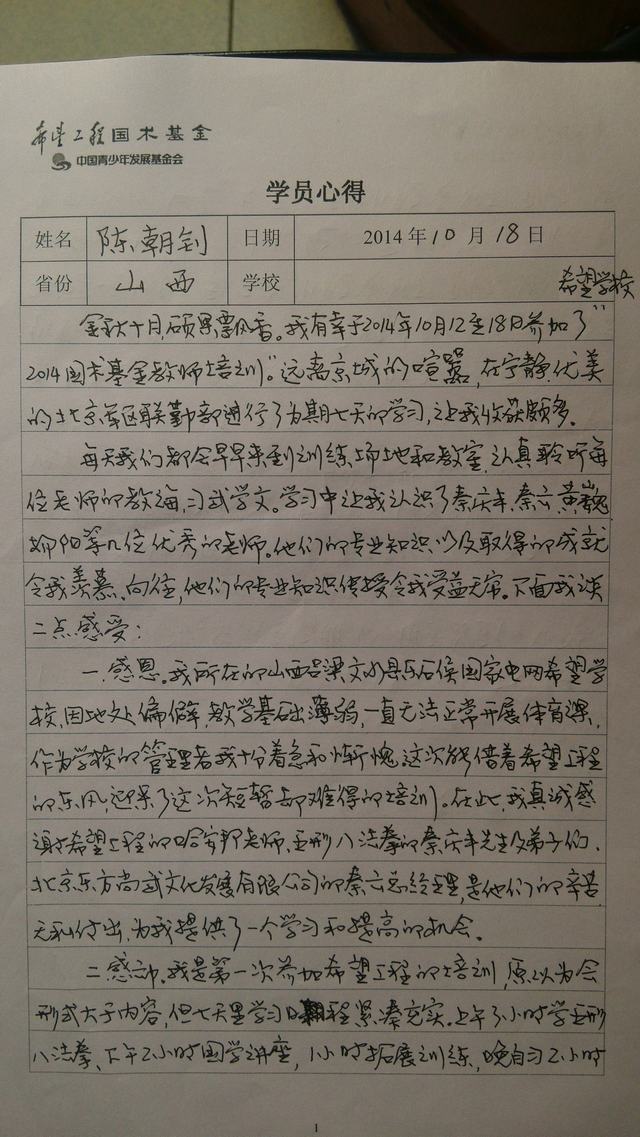 希望工程国术基金
中国青少年发展基金会
学员心得
姓名 陈朝钊 日期 2014年10月18日
省份 山西 学校 希望学校
金秋十月,硕果飘香。我有幸于2014年10月12至18日参加了“
2014国术基金教师培训”。远离京城的喧嚣,在宁静优美
的北京军区联勤部进行了为期七天的学习,让我收获颇多。
每天我们都会早早来到训练场地和教室,认真聆听每
位老师的教诲,习武学文。学习中让我认识了秦庆丰、秦云、黄巍
柳阳等几位优秀的老师。他们的专业知识以及取得的成就
令我羡慕、向往,他们的专业知识传授令我受益无穷。下面我谈
二点感受:
一.感恩。我所在的山西吕梁文水县乐石侯国家电网希望学
校,因地处偏僻,教学基础薄弱,一直无法正常开展体育课,
作为学校的管理者我十分着急和惭愧,这次能借着希望工程
的东风,迎来了这次短暂却难得的培训。在此,我真诚感
谢希望工程的哈安那老师、五形八法拳的秦庆丰先生及弟子们、
北京东方尚武文化发展有限公司的秦云总经理,是他们的辛苦
无私付出,为我提供了一个学习和提高的机会。
二.感动。我是第一次参加希望工程的培训,原以为会
形式大于内容,但七天里学习程紧凑充实。上午3小时学五形
八法拳、下午2小时国学讲座,1小时拓展训练,晚自习2小时
1